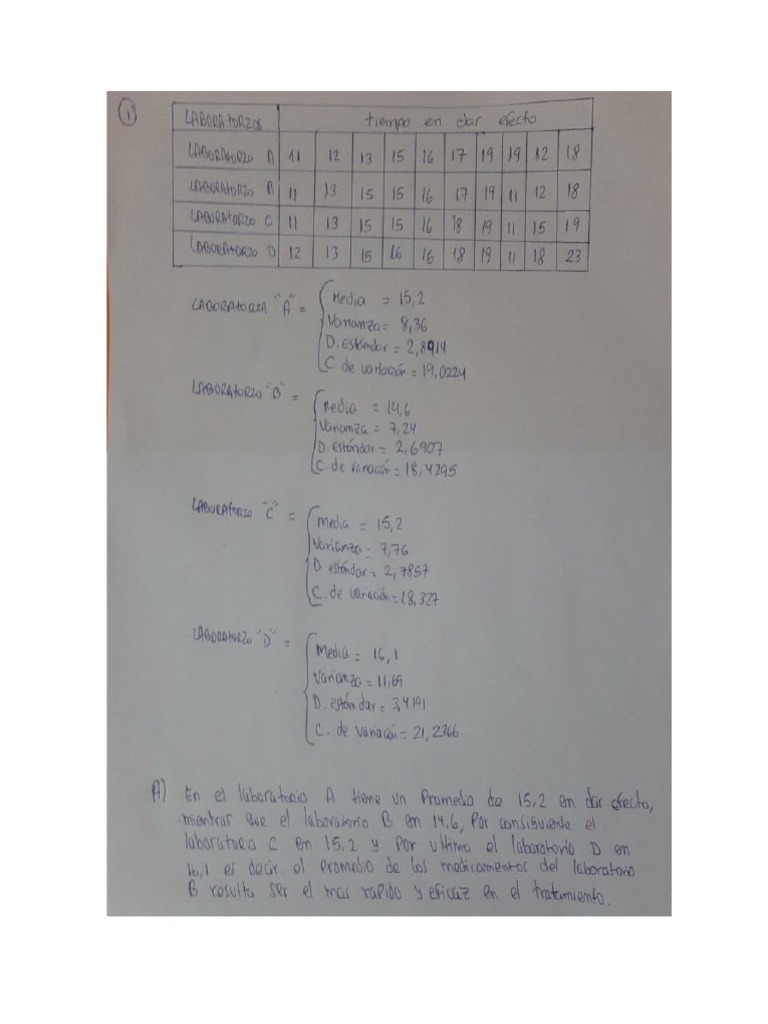 1
LABORATORIOS tiempo en dar efecto
LABORATORIO A 11 12 13 15 16 17 19 19 12 18
LABORATORIO B 11 13 15 15 16 17 19 11 12 18
LABORATORIO C 11 13 15 15 16 18 19 11 15 19
LABORATORIO D 12 13 15 16 16 18 19 11 18 23
LABORATORIA "A" =
Media = 15,2
Varianza = 8,36
D. estándar = 2,8914
C. de variación = 19,0224
LABORATORIO "B" =
Media = 14,6
Varianza = 7,24
D. estándar = 2,6907
C. de variación = 18,4295
LABORATORIO "C" =
Media = 15,2
Varianza = 7,76
D. estándar = 2,7857
C. de variación = 18,327
LABORATORIO "D" =
Media = 16,1
Varianza = 11,69
D. estándar = 3,4191
C. de variación = 21,2366
A) En el laboratorio A tiene un Promedio de 15,2 en dar efecto,
mientras que el laboratorio B en 14,6, Por consiguiente el
laboratorio C en 15,2 y Por ultimo el laboratorio D en
16,1 es decir. el promedio de los medicamentos del laboratorio
B resulta ser el mas rapido y eficaz en el tratamiento.